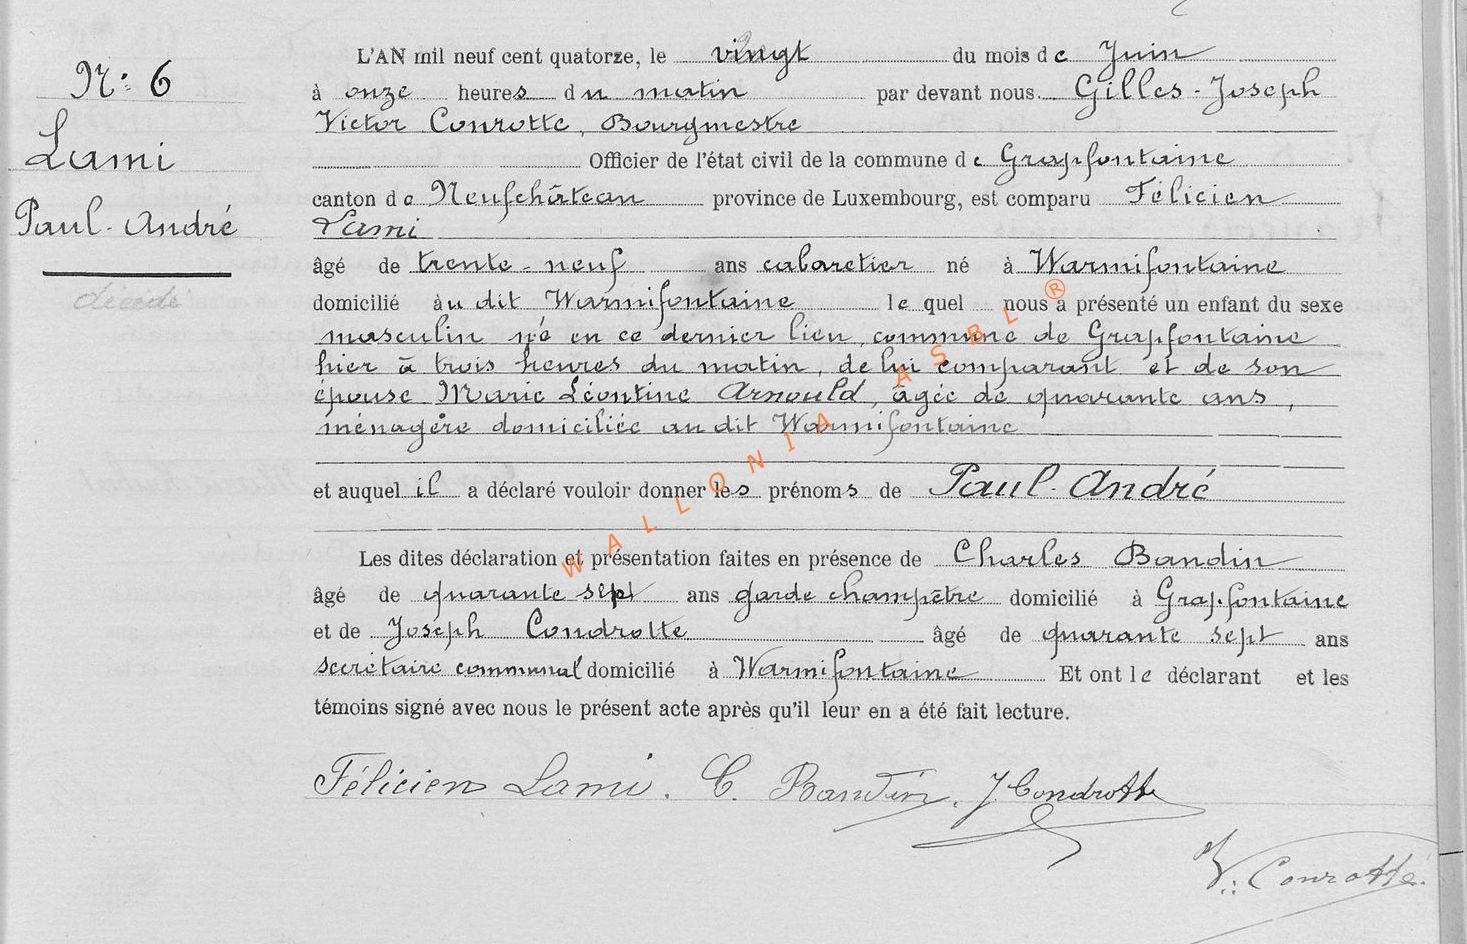 N° 6
Lami
Paul-André
décédé
L'AN mil neuf cent quatorze, le vingt du mois de Juin
à onze heures du matin par devant nous Gilles-Joseph
Victor Conrotte, Bourgmestre
Officier de l'état civil de la commune de Grapfontaine
canton de Neufchâteau province de Luxembourg, est comparu Félicien
Lami
âgé de trente-neuf ans cabaretier né à Warmifontaine
domicilié àu dit Warmifontaine lequel nous a présenté un enfant du sexe
masculin né en ce dernier lieu, commune de Grapfontaine
hier à trois heures du matin, de lui comparant et de son
épouse Marie Léontine Arnould, âgée de quarante ans,
ménagère domiciliée au dit Warmifontaine
et auquel il a déclaré vouloir donner les prénoms de Paul-André
Les dites déclaration et présentation faites en présence de Charles Bandin
âgé de quarante sept ans garde champêtre domicilié à Grapfontaine
et de Joseph Condrotte âgé de quarante sept ans
secrétaire communal domicilié à Warmifontaine Et ont le déclarant et les
témoins signé avec nous le présent acte après qu'il leur en a été fait lecture.
Félicien Lami. C. Bandin. J. Condrotte
V. Conrotte.
WALLONIA ASBL ®